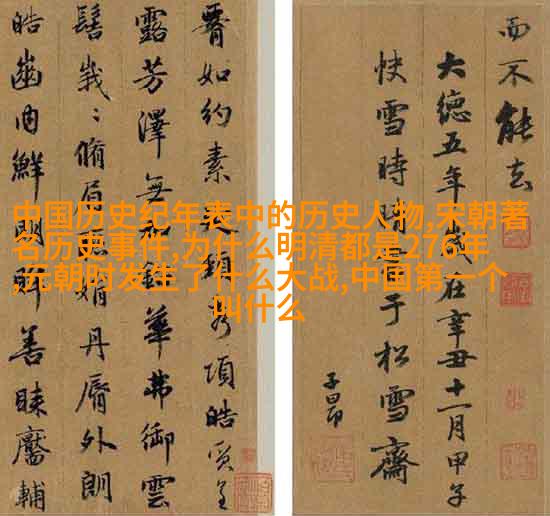 中国历史纪年表中的历史人物,宋朝著
名历史事件,为什么明清都是276年
,元朝时发生了什么大战,中国第一个
叫什么
如約素延頸秀項皓質呈
露芳澤無加鉛華弗御雲
髻峩〻脩眉聯娟丹脣外朗
皓齒內鮮明眸善睞靨輔
而不能去
大德五年歲在辛丑十一月甲子
快雪時晴書于松雪齋
子昂